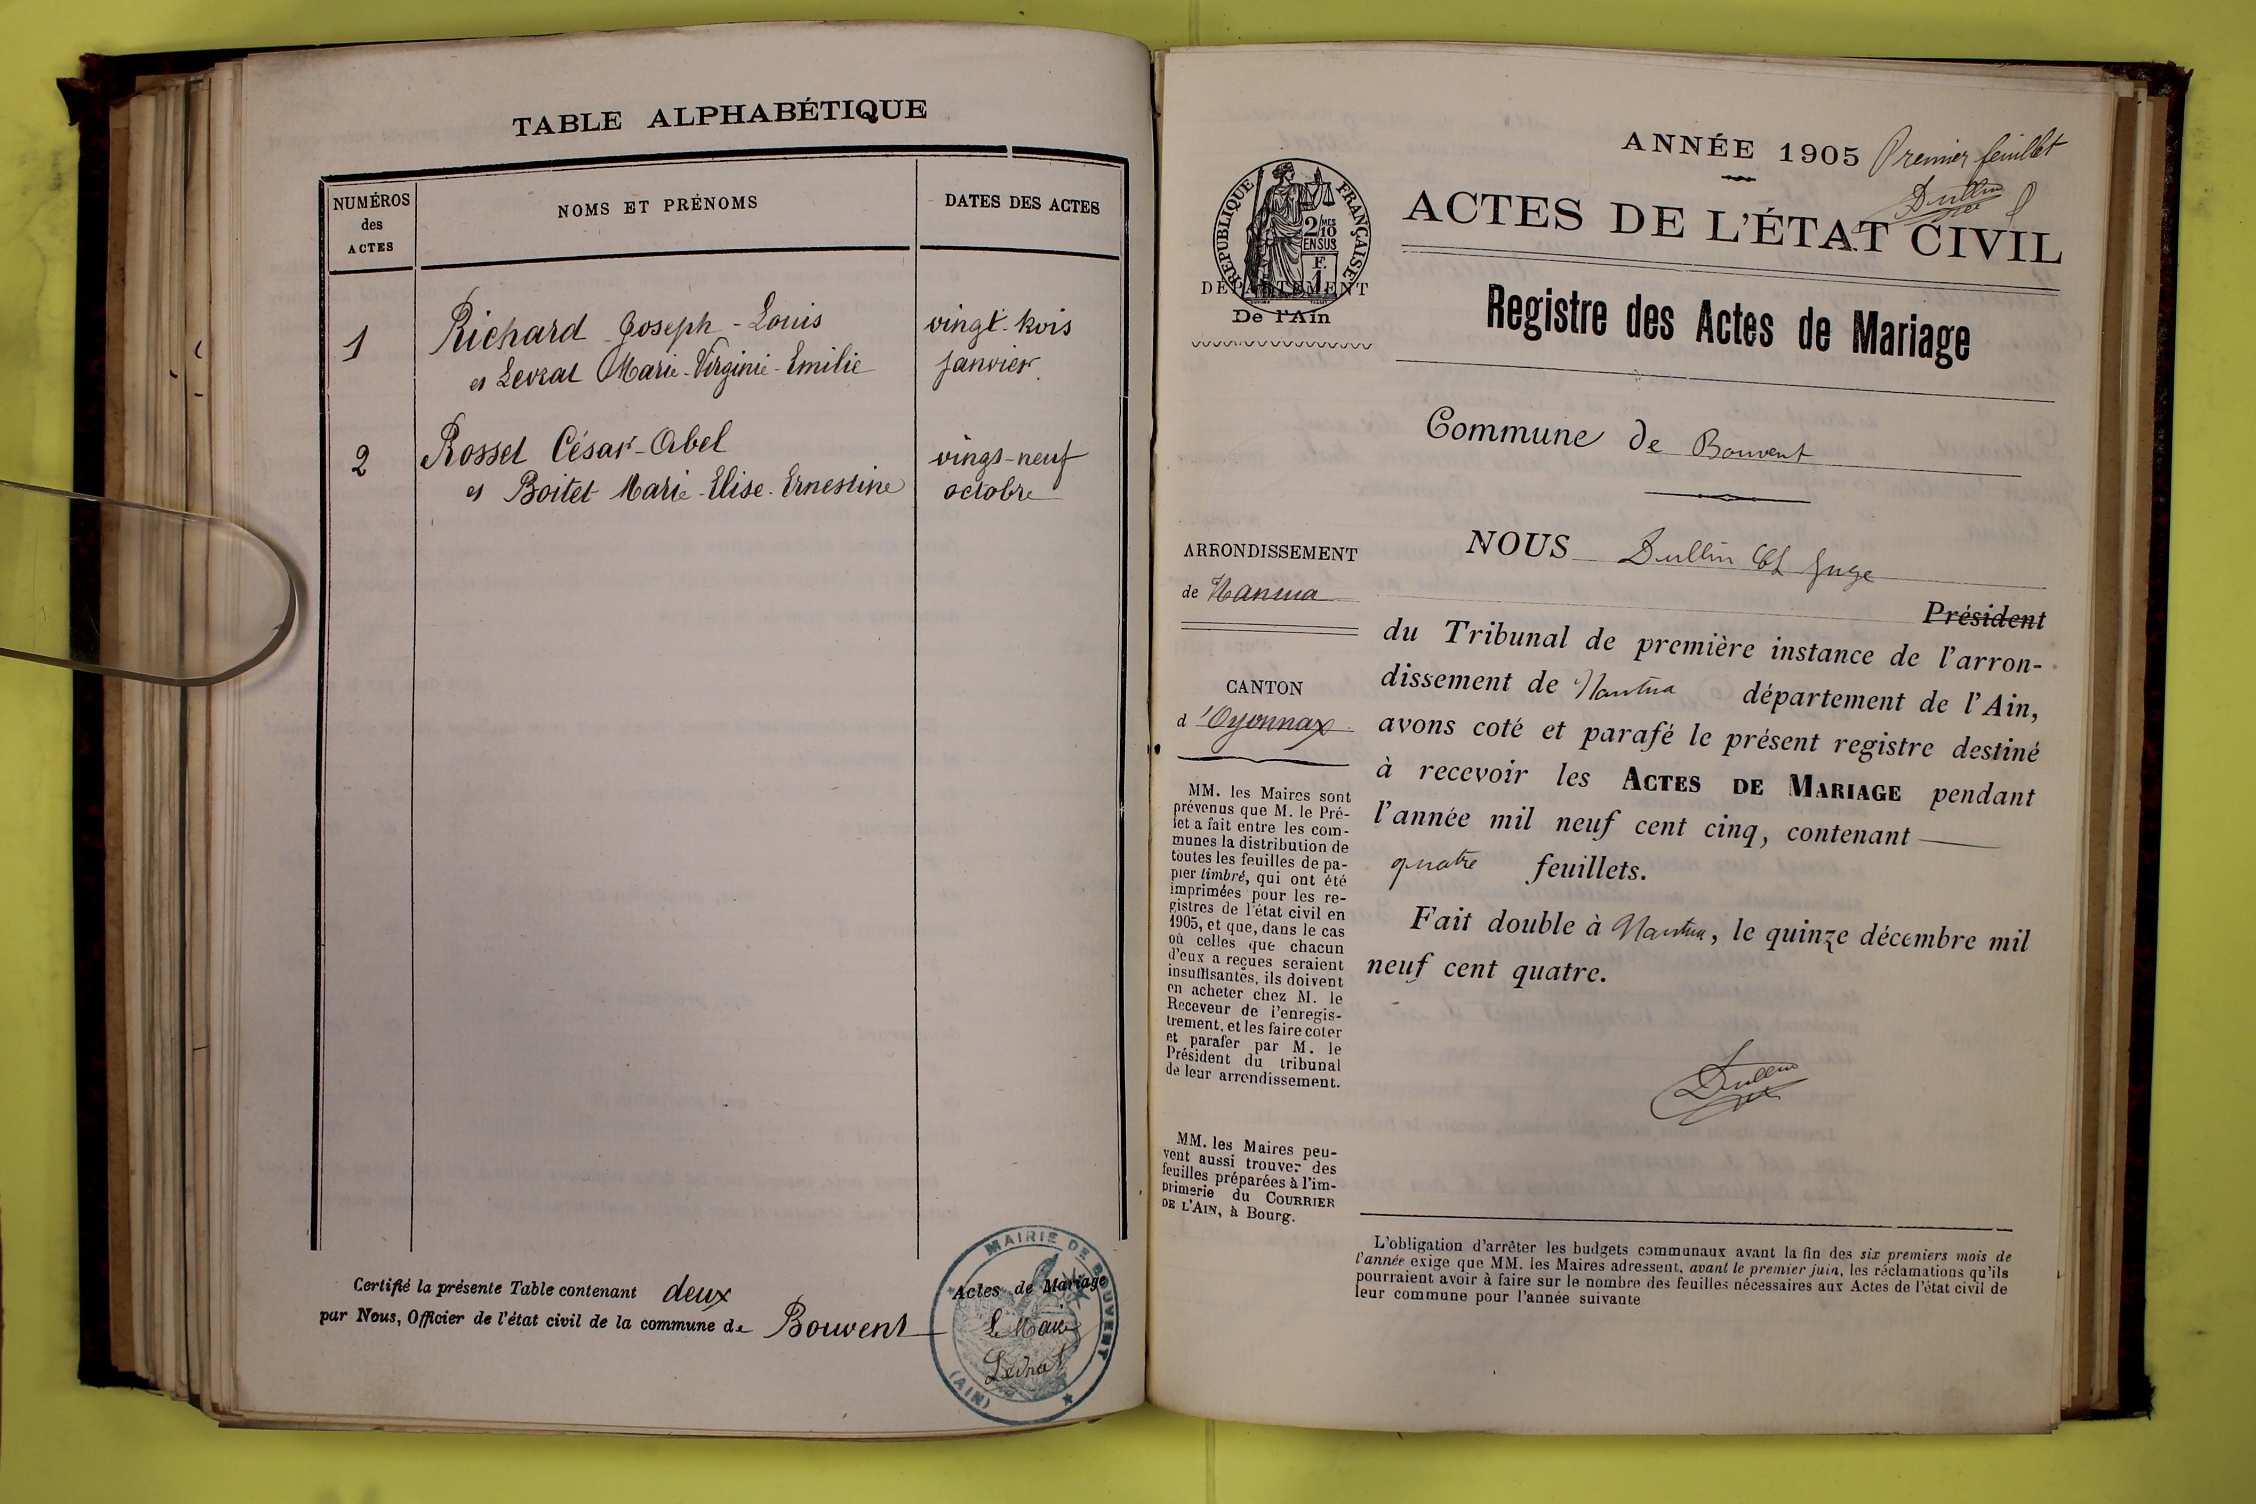 TABLE ALPHABÉTIQUE
NUMÉROS
des
ACTES
NOMS ET PRÉNOMS
DATES DES ACTES
1
Richard Joseph-Louis
et Levrat Marie-Virginie-Emilie
vingt-trois
janvier
2
Rosset César-Abel
et Boitet Marie-Elise-Ernestine
vingt-neuf
octobre
Certifié la présente Table contenant deux Actes de Mariage
par Nous, Officier de l'état civil de la commune de Bouvent
Le Maire
Levrat
MAIRIE DE BOUVENT
(AIN)
ANNÉE 1905
Premier feuillet
Dullin
RÉPUBLIQUE FRANÇAISE
2/10 MES
EN SUS
F.
1
DÉPARTEMENT
De l'Ain
ACTES DE L'ÉTAT CIVIL
Registre des Actes de Mariage
Commune de Bouvent
ARRONDISSEMENT
de Nantua
CANTON
d'Oyonnax
MM. les Maires sont
prévenus que M. le Pré-
fet a fait entre les com-
munes la distribution de
toutes les feuilles de pa-
pier timbré, qui ont été
imprimées pour les re-
gistres de l'état civil en
1905, et que, dans le cas
où celles que chacun
d'eux a reçues seraient
insuffisantes, ils doivent
en acheter chez M. le
Receveur de l'enregis-
trement, et les faire coter
et parafer par M. le
Président du tribunal
de leur arrondissement.
MM. les Maires peu-
vent aussi trouver des
feuilles préparées à l'im-
primerie du COURRIER
DE L'AIN, à Bourg.
NOUS Dullin Juge
Président
du Tribunal de première instance de l'arron-
dissement de Nantua département de l'Ain,
avons coté et parafé le présent registre destiné
à recevoir les ACTES DE MARIAGE pendant
l'année mil neuf cent cinq, contenant
quatre feuillets.
Fait double à Nantua, le quinze décembre mil
neuf cent quatre.
Dullin
L'obligation d'arrêter les budgets communaux avant la fin des six premiers mois de
l'année exige que MM. les Maires adressent, avant le premier juin, les réclamations qu'ils
pourraient avoir à faire sur le nombre des feuilles nécessaires aux Actes de l'état civil de
leur commune pour l'année suivante